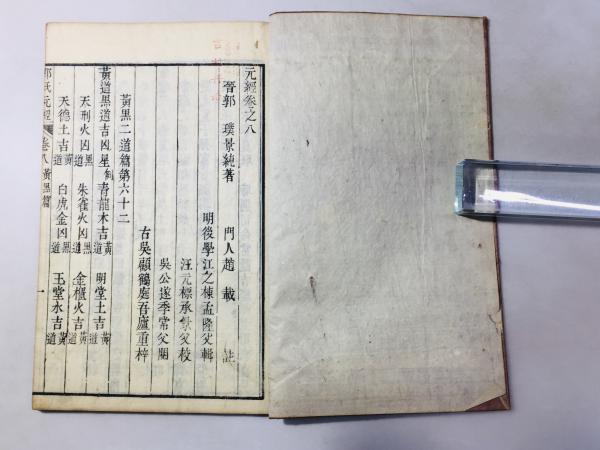 元經卷之八
晉郭 璞景純著 門人趙 載 註
明後學江之棟孟隆父輯
汪元標承景父校
吳公遂季常父閱
古吳顧鶴庭吾廬重梓
黃黑二道篇第六十二
黃道黑道吉凶星例 青龍木吉黃道 明堂土吉黃道
天刑火凶黑道 朱雀火凶黑道 金櫃火吉黃道
天德土吉黃道 白虎金凶黑道 玉堂水吉黃道
郭氏元經 卷八 黃黑篇 一